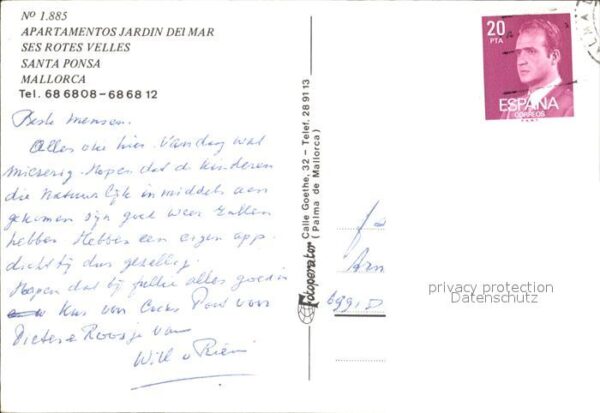 Nº 1.885
APARTAMENTOS JARDIN DEL MAR
SES ROTES VELLES
SANTA PONSA
MALLORCA
Tel. 68 6808 - 68 68 12
Beste mensen.
Alles oke hier. Vandaag wat
miezerig. Hopen dat de kinderen
die natuurlijk inmiddels aan
gekomen zijn goed weer zullen
hebben. Hebben een eigen app.
dichtbij dus gezellig.
Hopen dat bij jullie alles goed is
Kus van voor
Pieter & Roosje van
Will
Fotoperator Calle Goethe, 32 - Telef. 28 91 13
(Palma de Mallorca)
20
PTA
ESPAÑA
CORREOS
privacy protection
Datenschutz